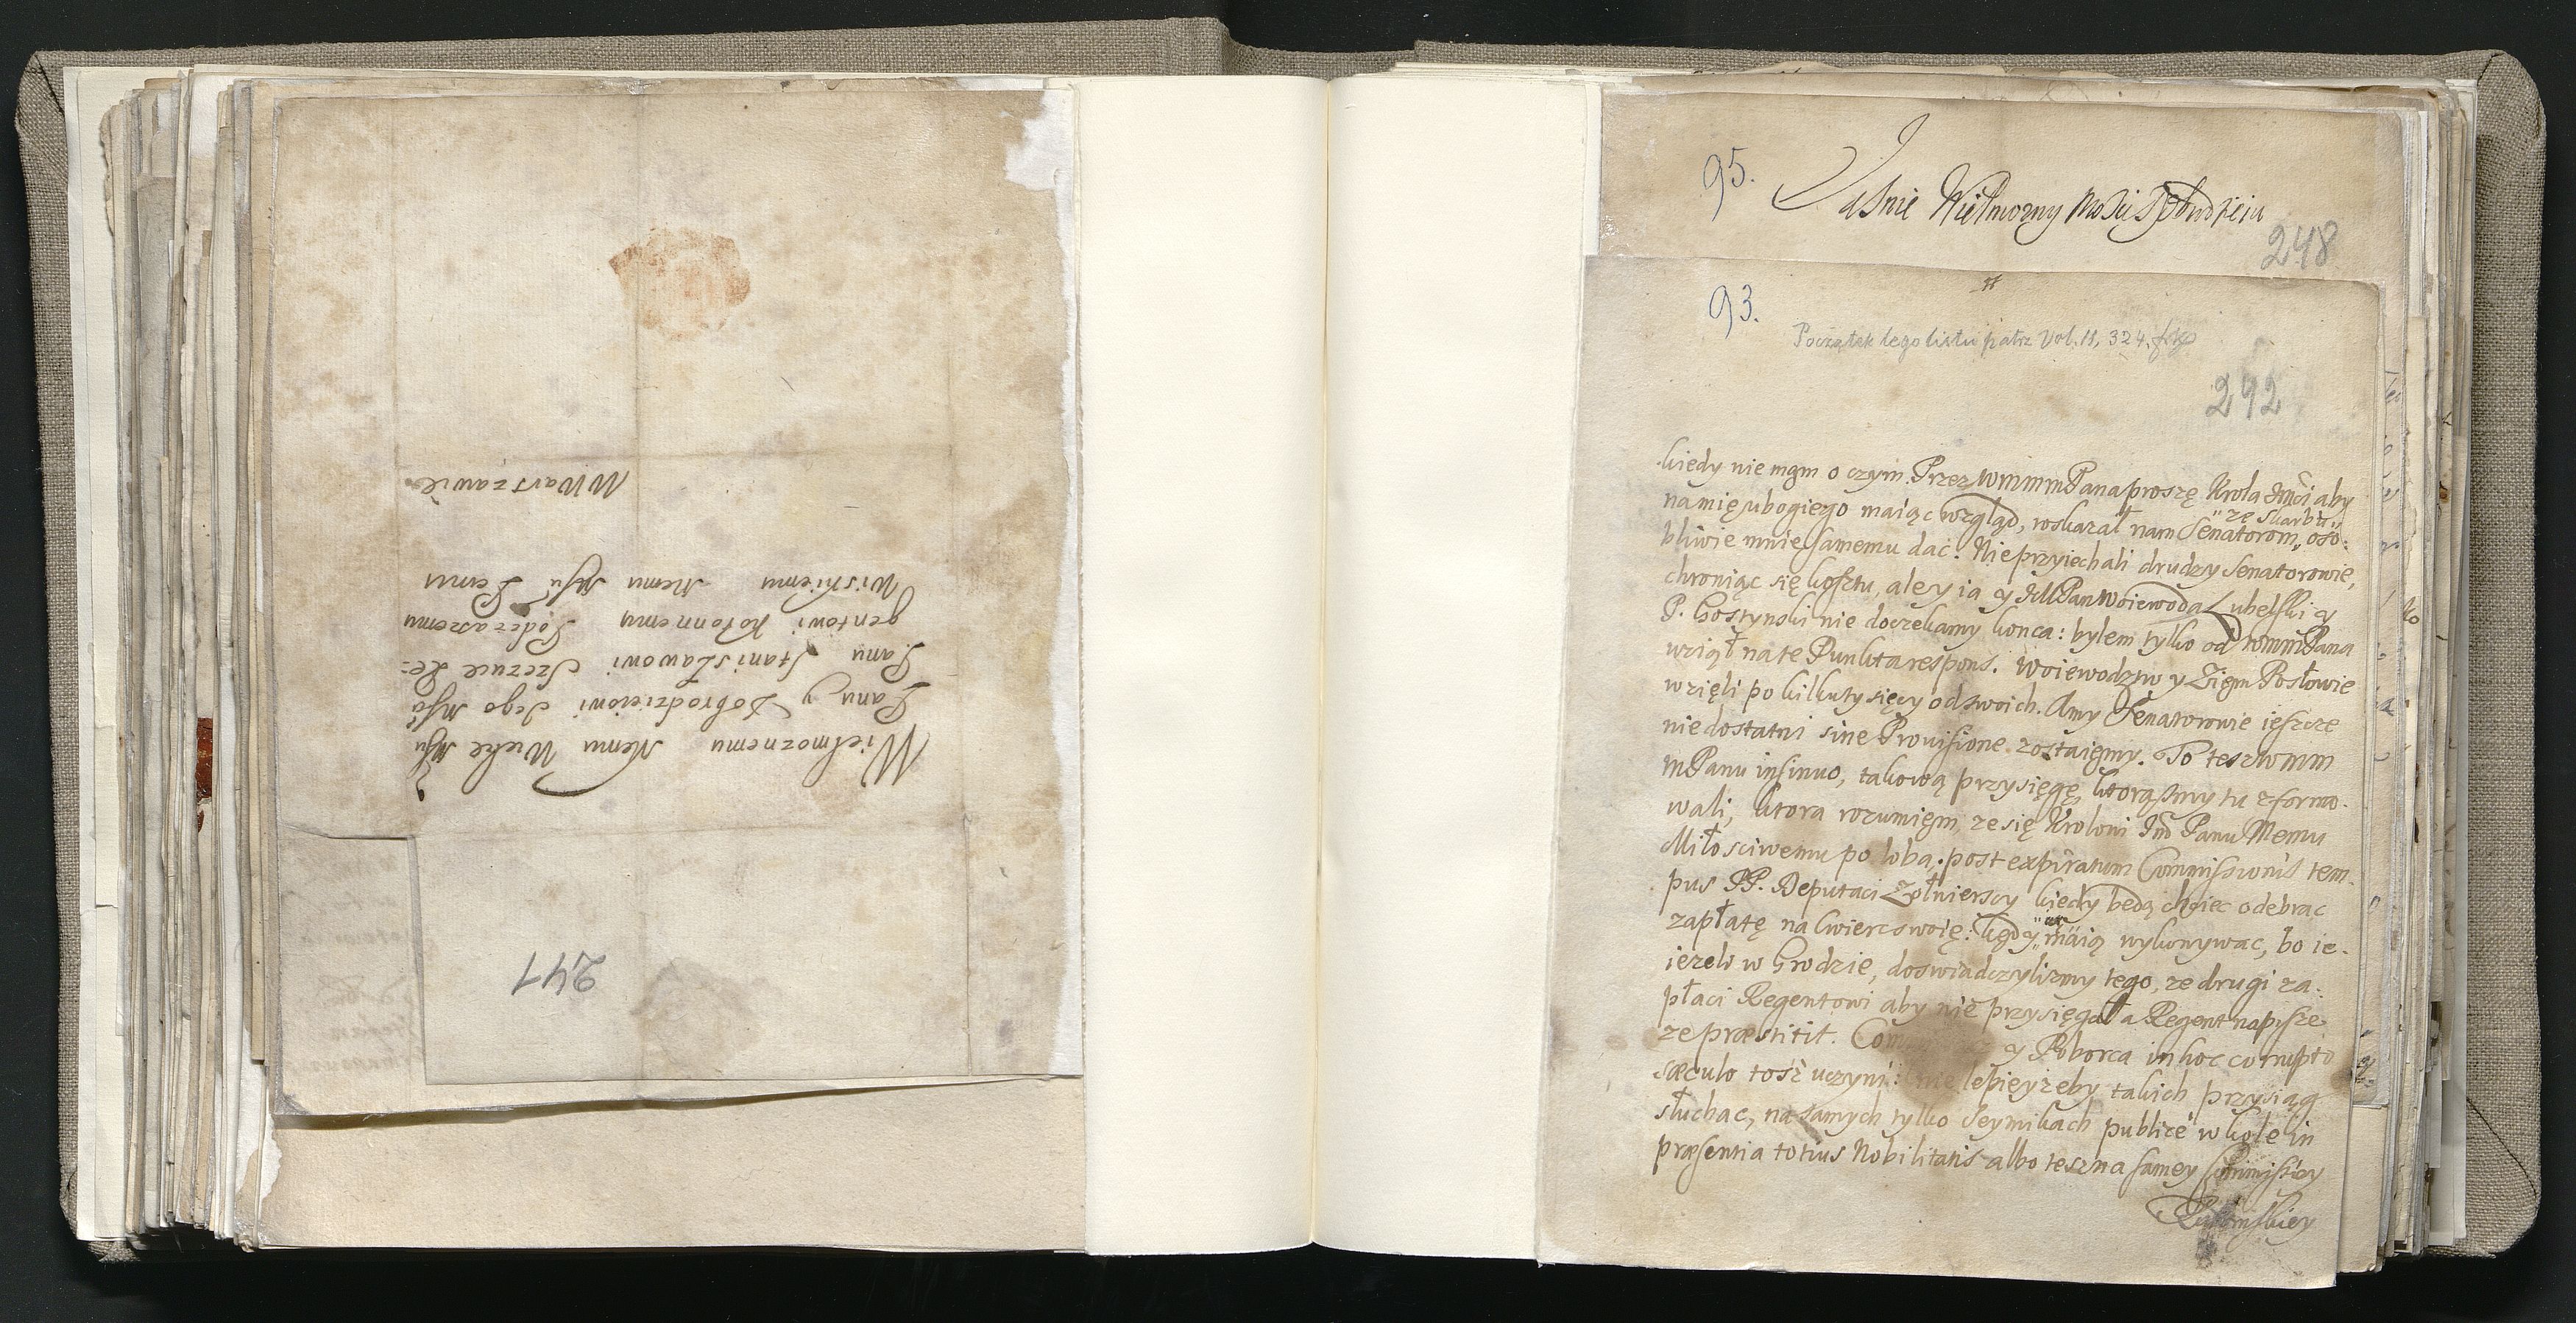 Wielmoznemu Memu Wielce Msu
Panu y Dobrodzieiowi Jego Msci
Panu Stanisławowi Szczuce Re-
gentowi Koronnemu Podczaszemu
Wiskiemu Memu Msu Panu
W Warszawie
241
95.
Jasnie Wielmozny Mosci Dobrodzieiu
248
93.
Początek tego listu patrz Vol. 11, 324.
242
kiedy nie mgm o czym. Przez wmmmPana proszę Krola Jmci aby
na mię ubogiego maiąc wzgląd, wskazał nam Senatorom "ze skarbu" oso-
bliwie mnie samemu dac. Nieprzyiechali drudzy Senatorowie,
chroniąc się kosztu, ale y ia y JMPan Woiewoda Lubelski y
P. Gostynski nie doczekamy konca: bylem tylko od wmmPana
wziął na te Punkta respons. Woiewodztw y Ziem Posłowie
wzięli po kilku tysięcy od swoich. A my Senatorowie ieszcze
niedostatni sine Provisione zostaięmy. To tesz wmm
mPanu insinuo, takową przysięgę, ktorąsmy tu zformo-
wali, ktora rozumięm, ze się Krolowi Jmo Panu Memu
Miłosciwemu po doba, post expiratum Commissionis tem-
pus PP. Deputaci Zołnierscy kiedy będą chciec odebrac
zapłatę na cwierc swoię: kędy maią wykonywac, bo ie-
iezeli w Grodzie, doswiadczylismy tego, ze drugi za-
płaci Regentowi aby nie przysięgał a Regent napisze
ze præstitit. y Poborca in hoc corrupto
sæculo tosz uczyni: nie lepiey zeby takich przysiąg
słuchac, na samych tylko Seymikach publice w kole in
præsentia totius Nobilitatis albo tesz na samey Commissiey
Radomskiey